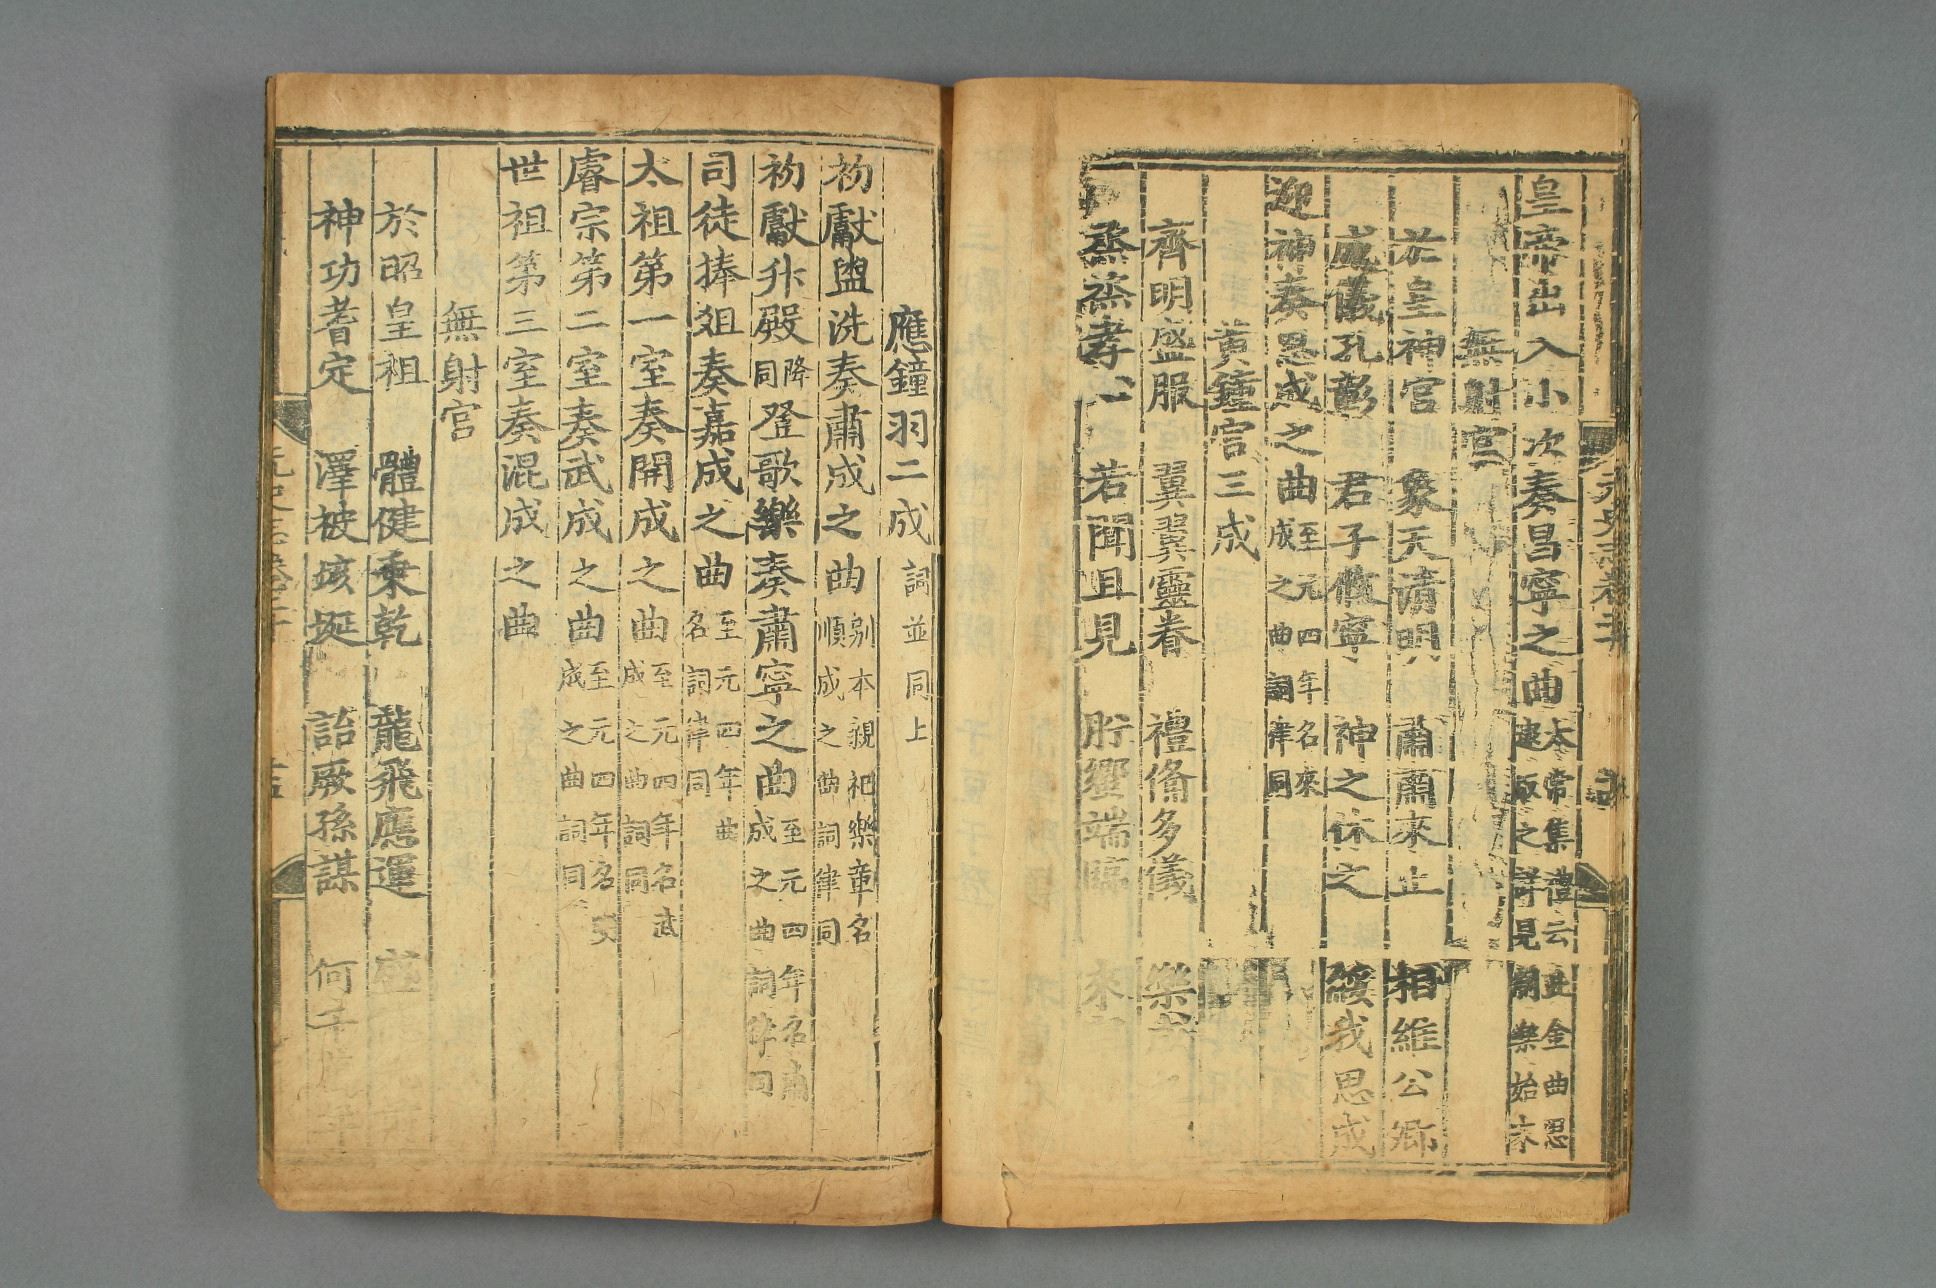 皇帝出入小次奏昌寧之曲太常集禮云此金曲思
逮取之詳見制樂始末
無射宮
於皇神宮 象天清明 肅肅來止 相維公卿
威儀孔彰 君子攸寧 神之休之 綏我思成
迎神奏思成之曲至元四年名來
成之曲詞律同
黃鍾宮三成
齊明盛服 翼翼靈眷 禮備多儀 樂
烝烝孝心 若聞且見 肸蠁端臨 來
應鐘羽二成詞並同上
初獻盥洗奏肅成之曲別本親祀樂章名
順成之曲詞律同
初獻升殿降同登歌樂奏肅寧之曲至元四年名肅
成之曲詞律同
司徒捧俎奏嘉成之曲至元四年曲
名詞律同
太祖第一室奏開成之曲至元四年名武
成之曲詞同
睿宗第二室奏武成之曲至元四年名
成之曲詞同
世祖第三室奏混成之曲
無射宮
於昭皇祖 體健乘乾 龍飛應運 盛
神功耆定 澤被垓埏 詒厥孫謀 何千